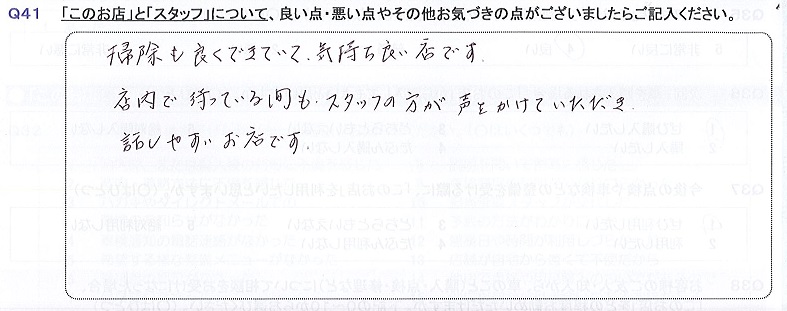 Q41 「このお店」と「スタッフ」について、良い点・悪い点やその他お気づきの点がございましたらご記入ください。
掃除も良くできていて、気持ち良い店です。
店内で待っている間も、スタッフの方が声をかけていただき
話しやすいお店です。